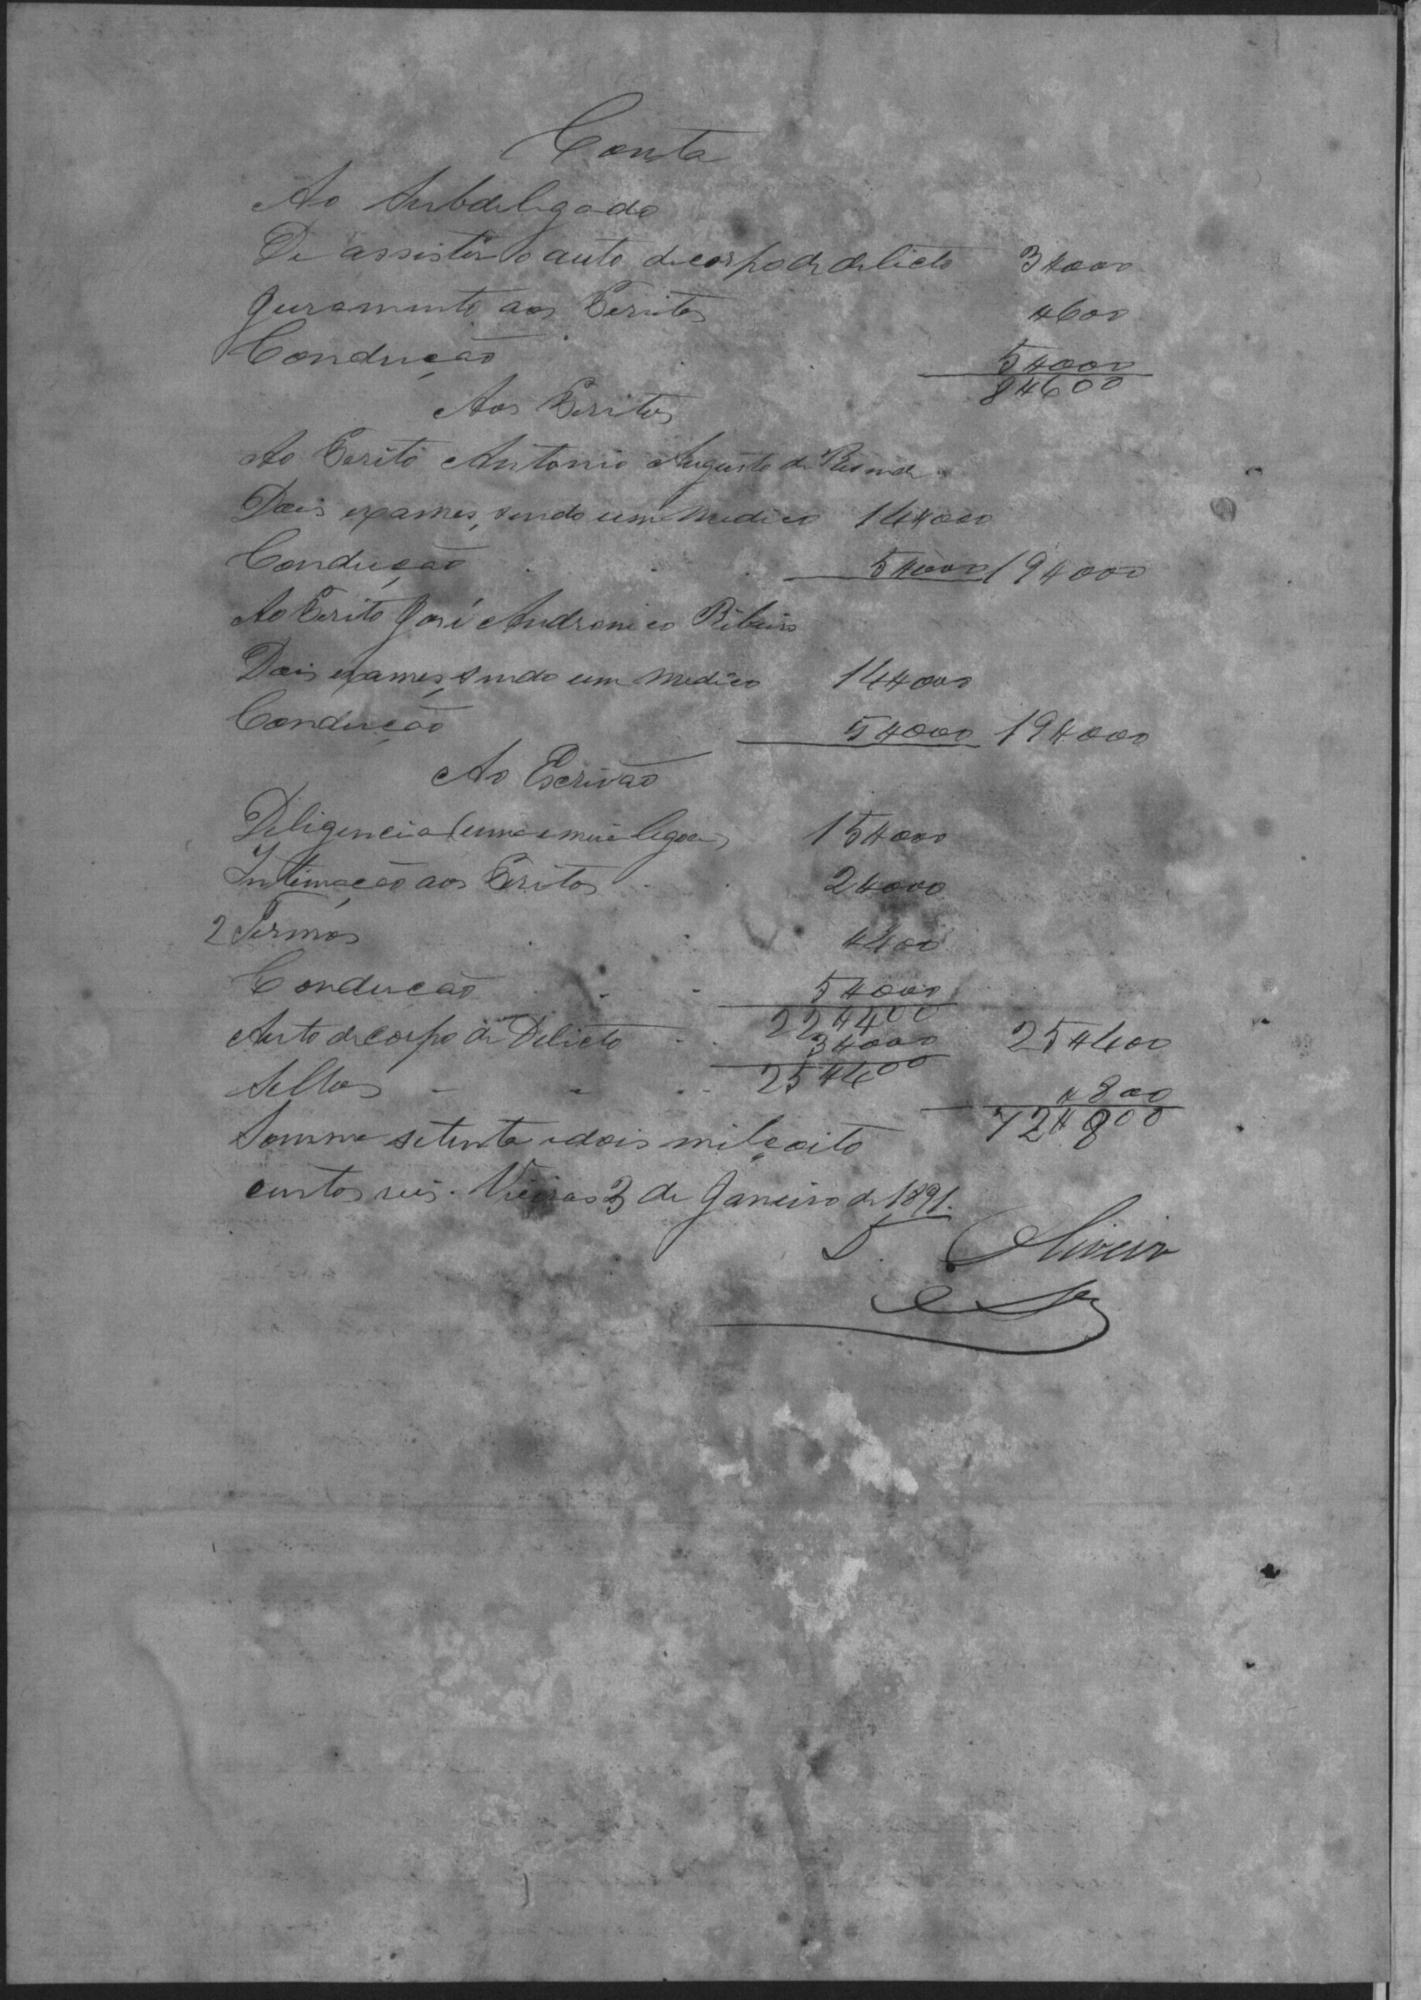 Conta
Ao Subdelegado
De assistir o auto de corpo de delicto 3$000
Juramento aos Peritos $600
Condução 5$000
8$600
Aos Peritos
Ao Perito Antonio Augusto de
Dois exames, sendo um medico 14$000
Condução 5$000 19$000
Ao Perito José Andronico Ribeiro
Dois exames, sendo um medico 14$000
Condução 5$000 19$000
Ao Escrivão
Diligencia (uma e meia legoa) 15$000
Intimação aos Peritos 2$000
2 Termos $400
Condução 5$000
22$400
Auto de corpo de Delicto 3$000 25$400
25$400
Sellos $800
72$800
Somma setenta e dois mil e oito
centos reis. Vieiras 3 de Janeiro de 1891.
Oliveira